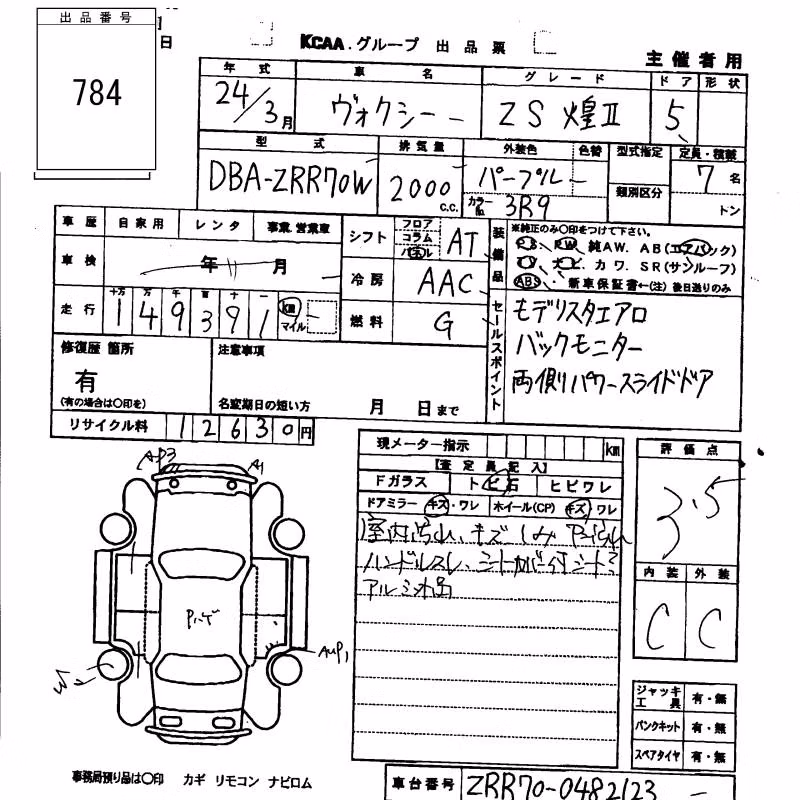 出品番号
1
784
日
KCAA.グループ 出品票
主催者用
年式 車名 グレード ドア 形状
24/3月 ヴォクシー ZS 煌II 5
型式 排気量 外装色 色替 型式指定 定員・積載
DBA-ZRR70W 2000 c.c. パープル 類別区分 7名
カラーNo. 3R9 トン
車歴 自家用 レンタ 事業.営業車
シフト フロア コラム パネル AT
装備品 ※純正のみ〇印をつけて下さい。
PS、PW、純AW. AB(エアバック)
TV、ナビ、カワ. SR(サンルーフ)
ABS、新車保証書←(注)後日送りのみ
車検 年 月
冷房 AAC
走行 十万 万 千 百 十 一
149391 km マイル
燃料 G
セールスポイント モデリスタエアロ
バックモニター
両側パワースライドドア
修復歴 箇所 注意事項
有
(有の場合は〇印を) 名変期日の短い方 月 日まで
リサイクル料 12630円
現メーター指示 km
【査定員記入】
Fガラス トビ石 ヒビワレ
ドアミラー キズ・ワレ ホイール(CP) キズ ワレ
室内汚れ、キズ
ハンドルスレ、
アルミ
評価点
3.5
内装 外装
C C
AP3 A1
Pルーゲ
AUP1
W2
ジャッキ工具 有・無
パンクキット 有・無
スペアタイヤ 有・無
事務局預り品は〇印 カギ リモコン ナビロム
車台番号 ZRR70-0482123